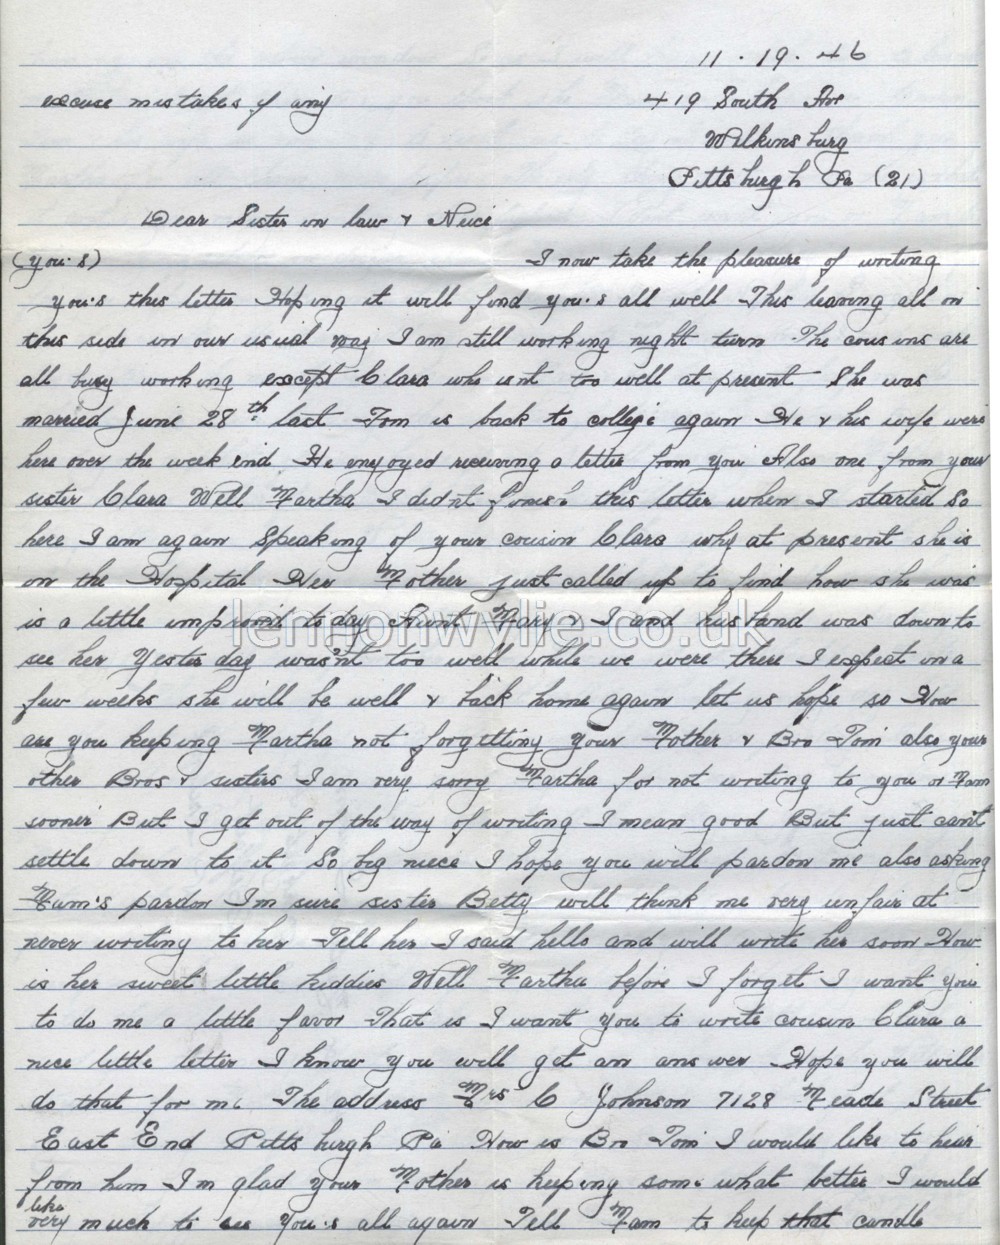 11. 19. 46
excuse mistakes if any 419 South Ave
Wilkinsburg
Pittsburgh Pa (21)
Dear Sister in law & Neice
(you.s) I now take the pleasure of writing
you.s this letter Hoping it will find you.s all well This leaving all on
this side in our usual way I am still working night turn The cousins are
all busy working except Clara who isnt too well at present She was
married June 28th last Tom is back to college again He & his wife were
here over the week end He enjoyed receiving a letter from you Also one from your
sister Clara Well Martha I didn't finish this letter when I started So
here I am again Speaking of your cousin Clara why at present she is
in the Hospital Her Mother just called up to find how she was
is a little improved today Aunt Mary & I and husband was down to
see her Yesterday wasn't too well while we were there I expect in a
few weeks she will be well & back home again let us hope so How
are you keeping Martha not forgetting your Mother & Bro Tom also your
other Bros & sisters I am very sorry Martha for not writing to you or Mam
sooner But I get out of the way of writing I mean good But just can't
settle down to it So big niece I hope you will pardon me also asking
Mam's pardon I'm sure sister Betty will think me very unfair at
never writing to her Tell her I said hello and will write her soon How
is her sweet little kiddies Well Martha before I forget I want you
to do me a little favor That is I want you to write cousin Clara a
nice little letter I know you will get an answer Hope you will
do that for me The address Mrs C Johnson 7128 Meade Street
East End Pittsburgh Pa How is Bro Tom I would like to hear
from him I'm glad your Mother is keeping some what better I would
like
very much to see You.s all again Tell Mam to keep that candle
lennonwylie.co.uk